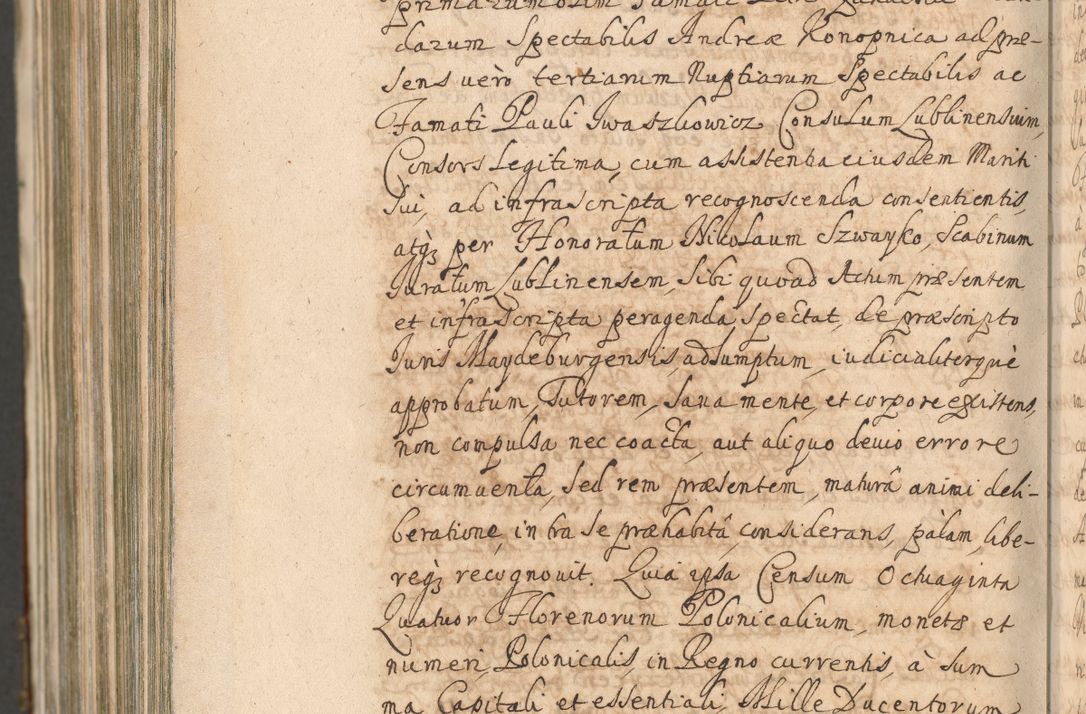 darum Spectabilis Andreæ Konopnica ad præ-
sens verò tertiarum Nuptiarum Spectabilis ac
Famati Pauli Iwaszkowicz Consulum Lublinensium,
Consors Legitima, cum assistentia eiusdem Mariti
sui, ad infrascripta recognoscenda consentientis,
atq; per Honoratum Nicolaum Szwayko, Scabinum
Iuratum Lublinensem, sibi quoad Actum præsentem
et infrascripta peragenda, spectat, de præscripto
Iuris Maydeburgensis, adsumptum, iudicialiterquè
approbatum, Tutorem, sana mente, et corpore existens,
non compulsa nec coacta, aut aliquo devio errore
circumventa, sed rem præsentem, maturâ animi deli-
beratione, intra se præhabitâ, considerans, pàlam, libe-
req; recognovit. Quia ipsa Censum Octuaginta
Quatuor Florenorum Polonicalium, monetæ et
numeri, Polonicalis, in Regno currentis, à sum
ma Capitali et essentiali, Mille Ducentorum